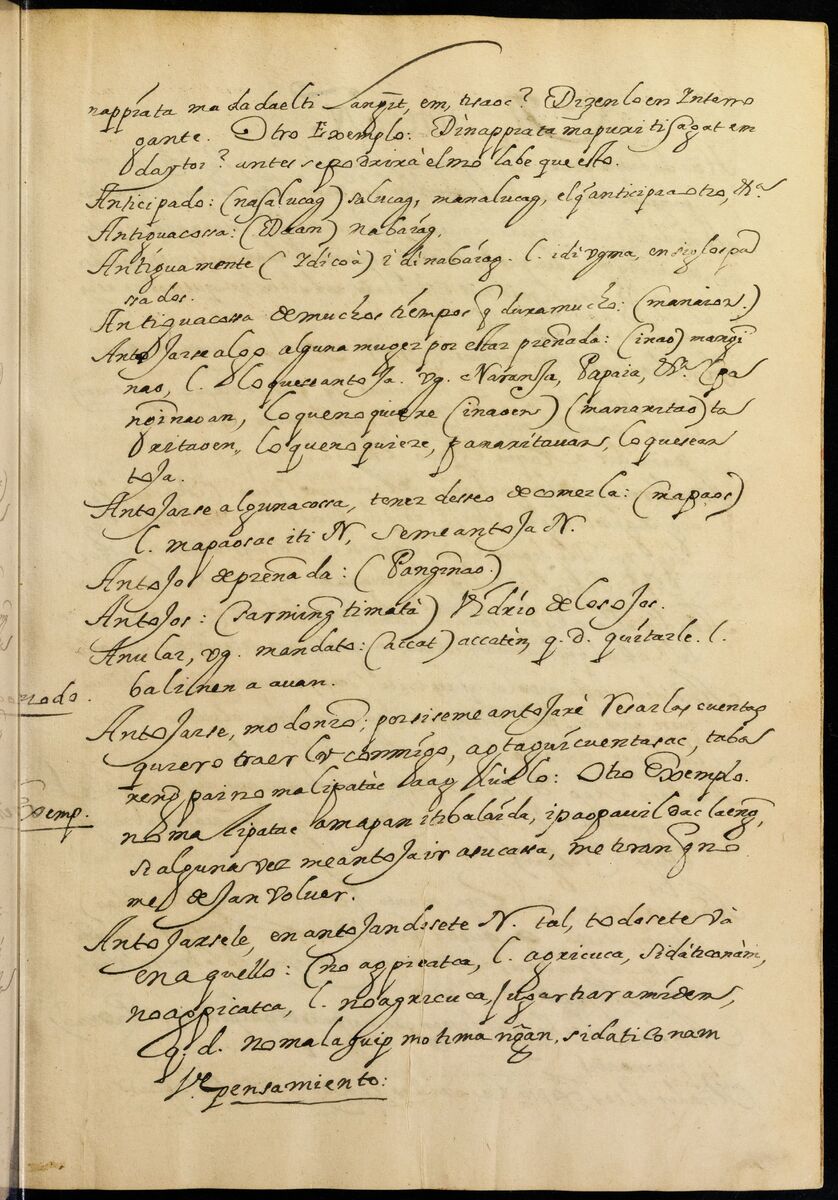 nappíata ma dadaelti sangit, em, tisaoc? Dizenlo en Interro
gante. Otro Exemplo: Dinappiata mapuri ti sagat em
daytoi? antes se podrirà el molabe que esto.
Anticipado: (nasalucag) salucag, manalucag, el q̃ anticipa a otro, &ª
Antigua cossa: (Daan) nabaíag,
Antiguamente (Idicoà) i dinabaíag. l. idi vgma, en siglos pa
ssados.
Antigua cossa de muchos tiempos q̃ dura mucho: (manaion.)
Antojarse algo alguna muger por estar preñada: (inao) mangi
nao, l. lo que se antoja. vg. Naranja, Papaia, &ª. pa
nginaoan, lo que no quiere (inaoen) (manaritao) ta
ritaoen, lo que no quiere, panaritauan, lo que se an
toja.
Antojarse alguna cossa, tener desseo de comerla: (mapaos)
l. mapaosac iti N, se me antoja N.
Antojo de preñada: (Panginao)
Antojos: (sarming ti matà) Vidrio de los ojos.
Anular, vg. mandato: (accat) accatèn, q. d. quitarle. l.
balinen a auan.
Antojarse, modonzo; por si se me antojarè resar las cuentas
quiero traerlas conmigo, agtaguicuentasac, taba
reng pai no malipatàc laag : Otro Exemplo.
no malipatac amapan iti balaida, ipaopauildac laeng,
si alguna vez me antoja ir a su cassa, me tiran q̃ no
me dejan volver.
Antojarsele, en antojandosete N. tal, todo se te và
en aquello: (no agpicatca, l. agricuca, sidàticonàm,
no agpicatca, l. no agricuca, sugartiaramidem,
q. d. no malaguip mo ti mañgan, sidati conam
Vᵉ pensamiento:
Exemp.